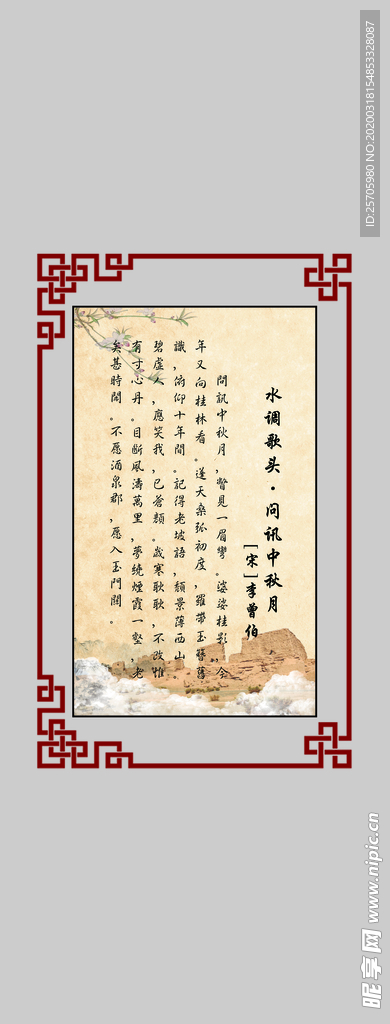 水调歌头·问讯中秋月
[宋]李曾伯
問訊中秋月,瞥見一眉彎。婆娑桂影,今
年又向桂林看。逢天桑弧初度,羅帶玉簪舊
識,俯仰十年間。記得老坡語,頹景薄西山
碧虛人,應笑我,已蒼顏。歲寒耿耿,不改惟
有寸心丹。目斷風濤萬里,夢繞煙霞一壑,老
矣甚時閒。不愿酒泉郡,愿入玉門關。
ID:25705980 NO:20200318154853328087
昵享网 www.nipic.cn